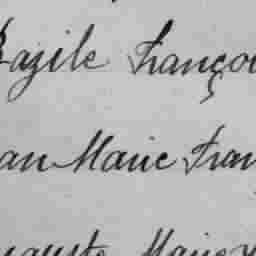 Bazile Françoi
an Marie Fran
uguste Marie